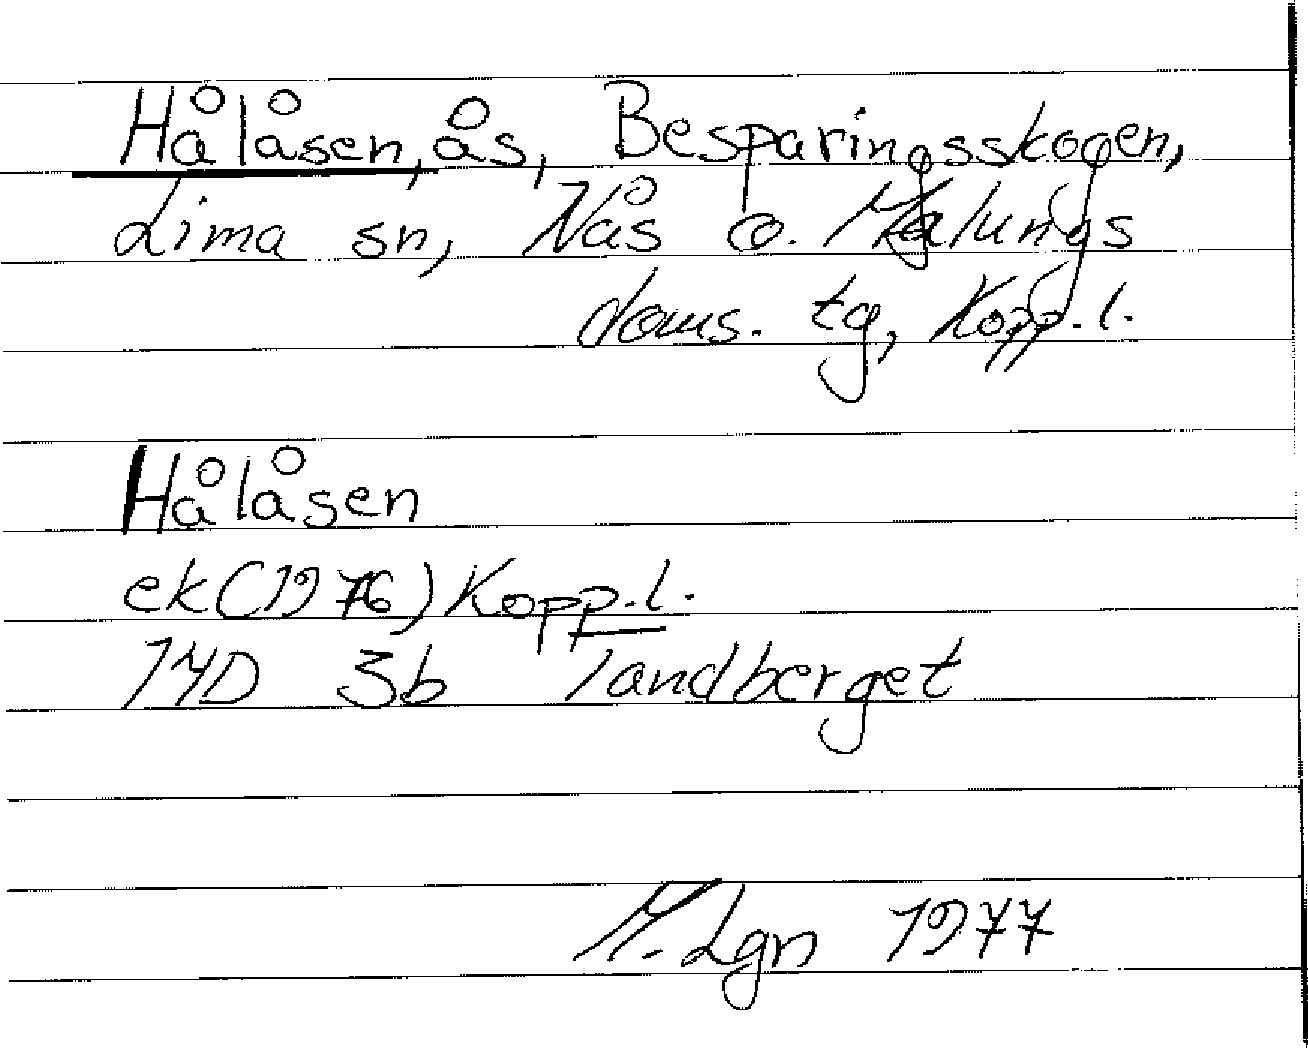 Hålåsen, ås, Besparingsskogen,
Lima sn, Nås o. Malungs
doms. tg, Kopp. l.
Hålåsen
ek (1976) Kopp. l.
14D 3b Tandberget
M. Lgn 1977